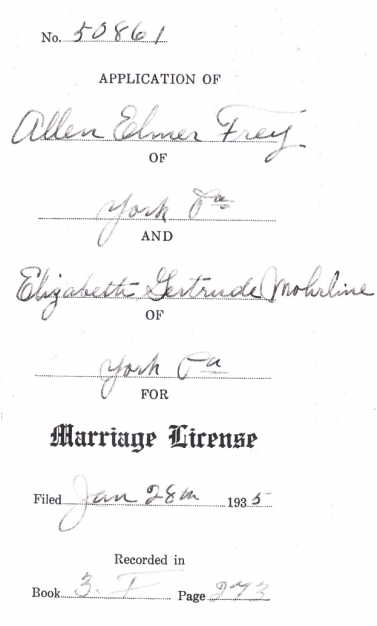 No. 50861
APPLICATION OF
Allen Elmer Frey
OF
York Pa
AND
Elizabeth Gertrude Mohrline
OF
York Pa
FOR
Marriage License
Filed Jan 28th 1935
Recorded in
Book 3. I Page 273